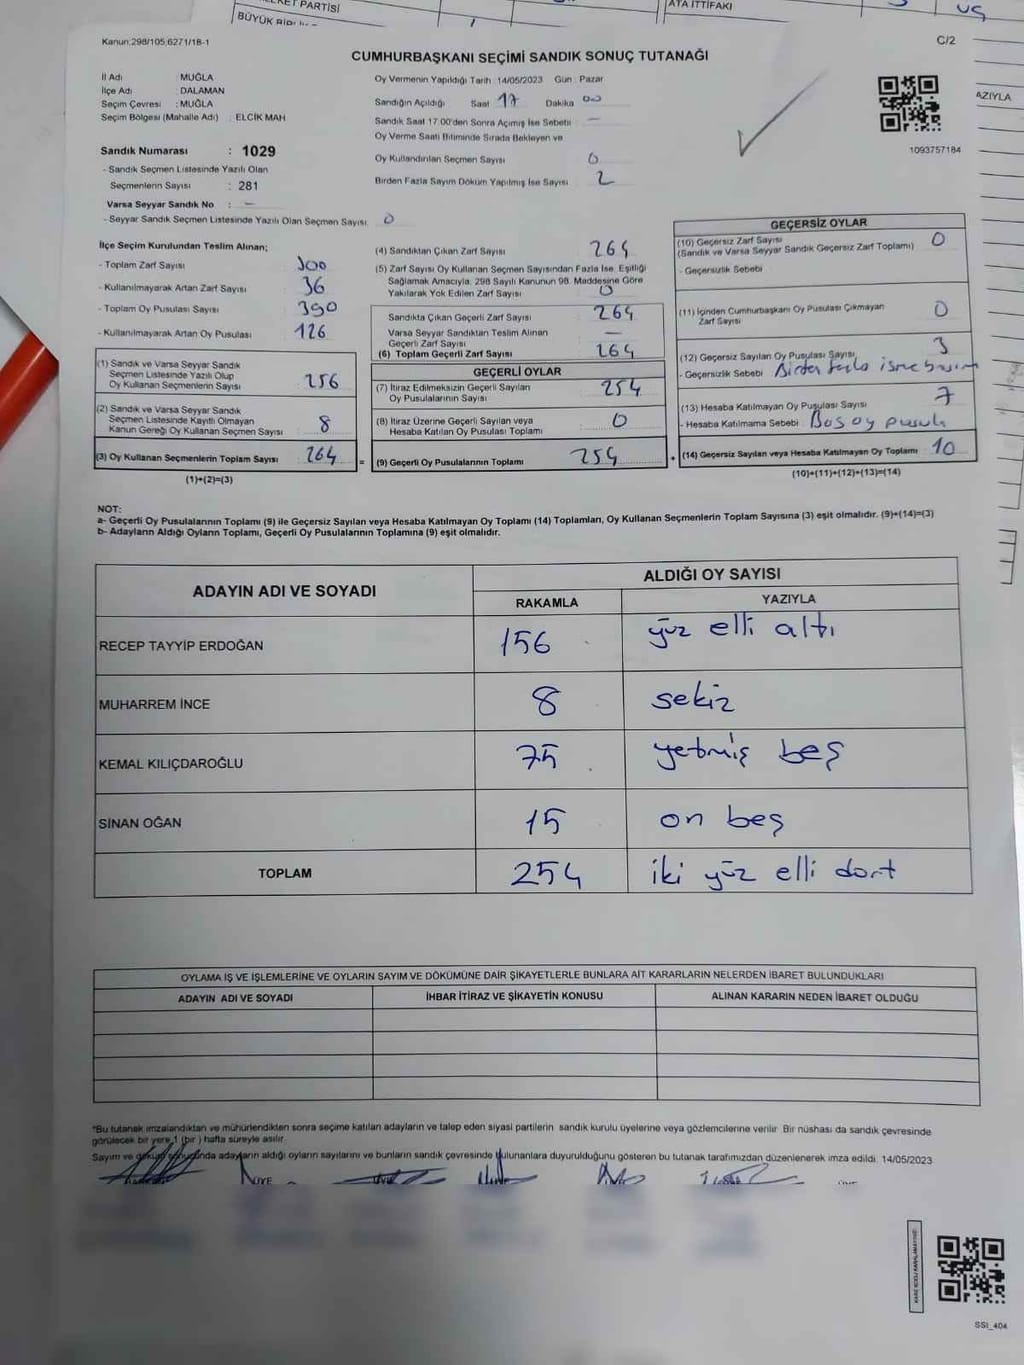 KET PARTİSİ
BÜYÜK
ATA İTTİFAKI
AZIYLA
Kanun:298/105,6271/18-1
C/2
CUMHURBAŞKANI SEÇİMİ SANDIK SONUÇ TUTANAĞI
İl Adı : MUĞLA
İlçe Adı : DALAMAN
Seçim Çevresi : MUĞLA
Seçim Bölgesi (Mahalle Adı) : ELCİK MAH
Oy Vermenin Yapıldığı Tarih :14/05/2023 Gün : Pazar
Sandığın Açıldığı Saat 17 Dakika 00
Sandık Saat 17.00'den Sonra Açılmış İse Sebebi —
Oy Verme Saati Bitiminde Sırada Bekleyen ve
Oy Kullandırılan Seçmen Sayısı 0
Birden Fazla Sayım Döküm Yapılmış İse Sayısı 2
1093757184
Sandık Numarası : 1029
- Sandık Seçmen Listesinde Yazılı Olan
Seçmenlerin Sayısı : 281
Varsa Seyyar Sandık No : —
- Seyyar Sandık Seçmen Listesinde Yazılı Olan Seçmen Sayısı: 0
İlçe Seçim Kurulundan Teslim Alınan;
- Toplam Zarf Sayısı : 300
- Kullanılmayarak Artan Zarf Sayısı : 36
- Toplam Oy Pusulası Sayısı : 390
- Kullanılmayarak Artan Oy Pusulası : 126
(1) Sandık ve Varsa Seyyar Sandık
Seçmen Listesinde Yazılı Olup
Oy Kullanan Seçmenlerin Sayısı 256
(2) Sandık ve Varsa Seyyar Sandık
Seçmen Listesinde Kayıtlı Olmayan
Kanun Gereği Oy Kullanan Seçmen Sayısı 8
(3) Oy Kullanan Seçmenlerin Toplam Sayısı 264
(1)+(2)=(3)
(4) Sandıktan Çıkan Zarf Sayısı 264
(5) Zarf Sayısı Oy Kullanan Seçmen Sayısından Fazla İse, Eşitliği
Sağlamak Amacıyla; 298 Sayılı Kanunun 98. Maddesine Göre
Yakılarak Yok Edilen Zarf Sayısı 0
Sandıkta Çıkan Geçerli Zarf Sayısı 264
Varsa Seyyar Sandıktan Teslim Alınan
Geçerli Zarf Sayısı —
(6) Toplam Geçerli Zarf Sayısı 264
GEÇERLİ OYLAR
(7) İtiraz Edilmeksizin Geçerli Sayılan
Oy Pusulalarının Sayısı 254
(8) İtiraz Üzerine Geçerli Sayılan veya
Hesaba Katılan Oy Pusulası Toplamı 0
= (9) Geçerli Oy Pusulalarının Toplamı 254
GEÇERSİZ OYLAR
(10) Geçersiz Zarf Sayısı 0
(Sandık ve Varsa Seyyar Sandık Geçersiz Zarf Toplamı)
- Geçersizlik Sebebi
(11) İçinden Cumhurbaşkanı Oy Pusulası Çıkmayan
Zarf Sayısı 0
(12) Geçersiz Sayılan Oy Pusulası Sayısı 3
- Geçersizlik Sebebi Birden fazla isme basım
(13) Hesaba Katılmayan Oy Pusulası Sayısı 7
- Hesaba Katılmama Sebebi : Boş oy pusula
+ (14) Geçersiz Sayılan veya Hesaba Katılmayan Oy Toplamı 10
(10)+(11)+(12)+(13)=(14)
NOT:
a- Geçerli Oy Pusulalarının Toplamı (9) ile Geçersiz Sayılan veya Hesaba Katılmayan Oy Toplamı (14) Toplamları, Oy Kullanan Seçmenlerin Toplam Sayısına (3) eşit olmalıdır. (9)+(14)=(3)
b- Adayların Aldığı Oyların Toplamı, Geçerli Oy Pusulalarının Toplamına (9) eşit olmalıdır.
ADAYIN ADI VE SOYADI
ALDIĞI OY SAYISI
RAKAMLA YAZIYLA
RECEP TAYYİP ERDOĞAN 156 yüz elli altı
MUHARREM İNCE 8 sekiz
KEMAL KILIÇDAROĞLU 75 yetmiş beş
SİNAN OĞAN 15 on beş
TOPLAM 254 iki yüz elli dört
OYLAMA İŞ VE İŞLEMLERİNE VE OYLARIN SAYIM VE DÖKÜMÜNE DAİR ŞİKAYETLERLE BUNLARA AİT KARARLARIN NELERDEN İBARET BULUNDUKLARI
ADAYIN ADI VE SOYADI İHBAR İTİRAZ VE ŞİKAYETİN KONUSU ALINAN KARARIN NEDEN İBARET OLDUĞU
*Bu tutanak imzalandıktan ve mühürlendikten sonra seçime katılan adayların ve talep eden siyasi partilerin sandık kurulu üyelerine veya gözlemcilerine verilir. Bir nüshası da sandık çevresinde
görülecek bir yere 1 (bir ) hafta süreyle asılır.
Sayım ve döküm sonucunda adayların aldığı oyların sayılarını ve bunların sandık çevresinde bulunanlara duyurulduğunu gösteren bu tutanak tarafımızdan düzenlenerek imza edildi. 14/05/2023
ÜYE
SSI_404